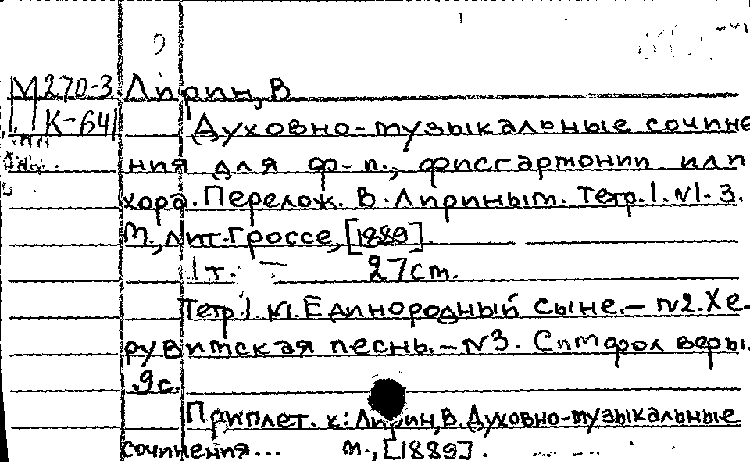 М 270-3 Лирин, В
К-641 Духовно-музыкальные сочине
ния для ф-п., фисгармонии или
хора. Перелож. В. Лириным. Тетр.1. №1-3.
М., лит. Гроссе, [1889].
1 т. 27 см.
Тетр.1 №1. Единородный сыне. – №2. Хе-
рувимская песнь. – №3. Символ веры.
9 с.
Приплет. к: Лирин, В. Духовно-музыкальные
сочинения... М., [1889].